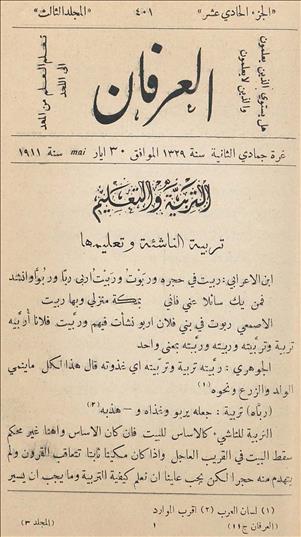 «الجزء الحادي عشر» ٤٠١ «المجلد الثالث»
تعلم العلم من المهد
الى اللحد
العرفان
هل يستوي الذين يعلمون
والذين لا يعلمون
غرة جمادي الثانية سنة ١٣٢٩ الموافق ٣٠ ايار mai سنة ١٩١١
التربية والتعليم
تربية الناشئة وتعليمها
ابن الاعرابي: ربيت في حجره وربوت وربيت اربى ربا وربوا وانشد
فمن يك سائلا عني فاني بمكة منزلي وبها ربيت
الاصمعي ربوت في بني فلان اربو نشأت فيهم وربيت فلانا أربيه
تربية وتربيته وربيته وربته بمعنى واحد
الجوهري: ربيته تربية وتربيته اي غذوته قال هذا لكل ماينمي
الولد والزرع ونحوه (١)
(رباه) تربية: جعله يربو وغذاه و – هذبه (٢)
التربية للناشئ كالاساس للبيت فان كان الاساس واهنا غير محكم
سقط البيت في القريب العاجل واذا كان مكينا ثابتا تتعاقب القرون ولم
يتهدم منه حجر الكن يجب علينا ان نعلم كيفية التربية وما يجب ان يسير
(١) لسان العرب (٢) اقرب الوارد
(العرفان ج ١١) ١ (المجلد ٣)